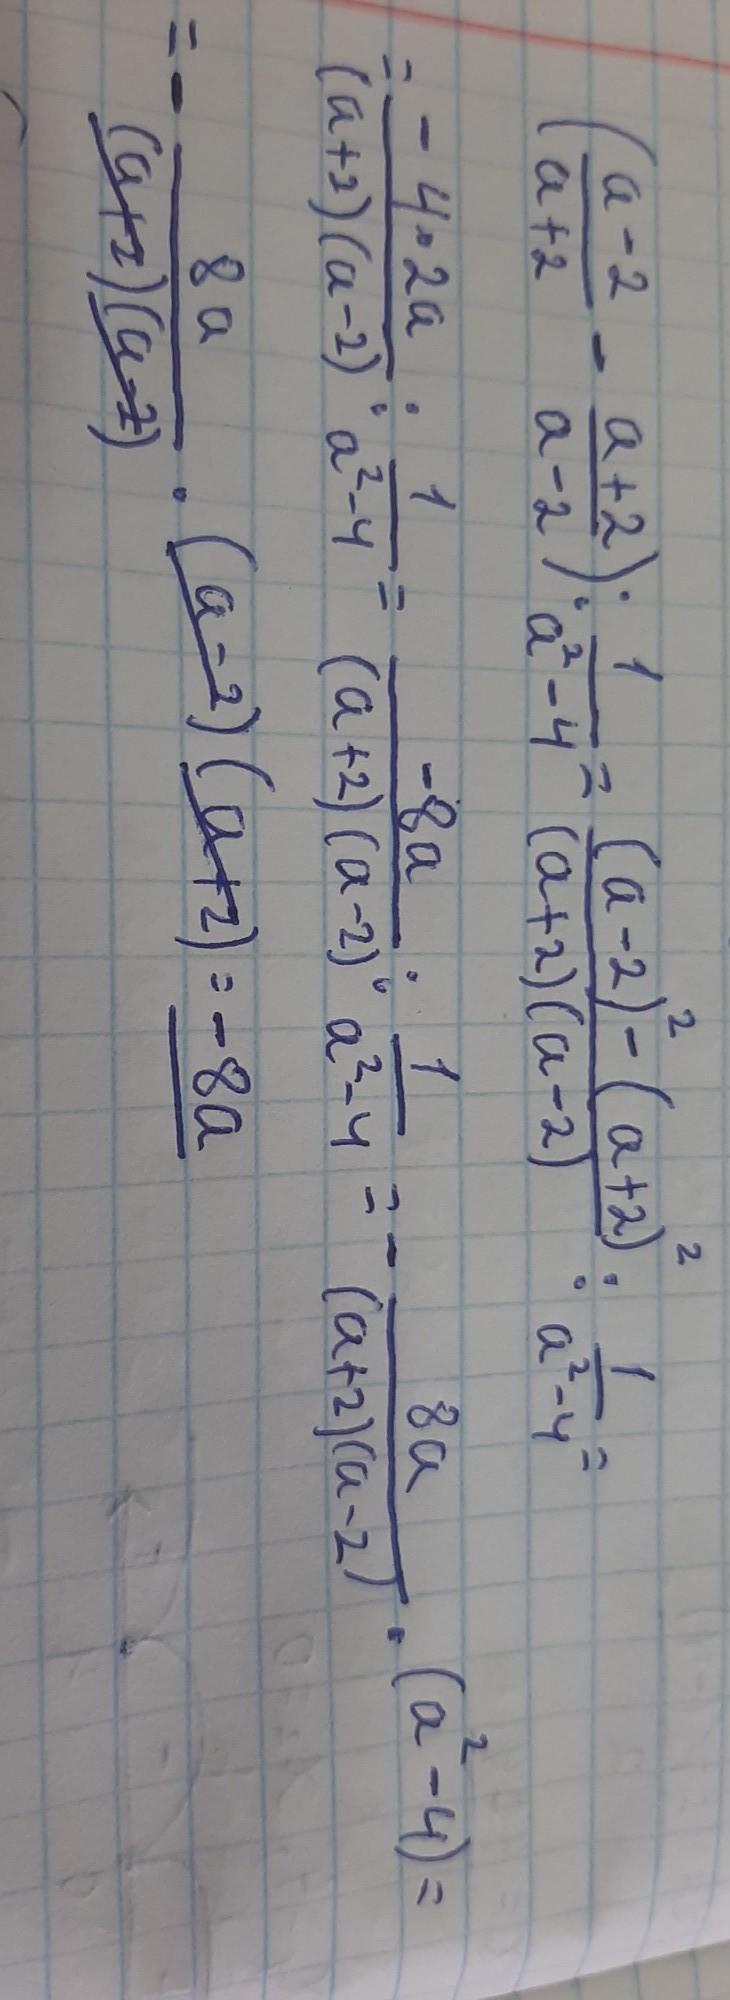 (a-2/a+2 - a+2/a-2) : 1/a²-4 = (a-2)²-(a+2)²/(a+2)(a-2) : 1/a²-4 =
= -4·2a/(a+2)(a-2) : 1/a²-4 = -8a/(a+2)(a-2) : 1/a²-4 = - 8a/(a+2)(a-2) · (a²-4) =
= - 8a/(a+2)(a-2) · (a-2)(a+2) = -8a